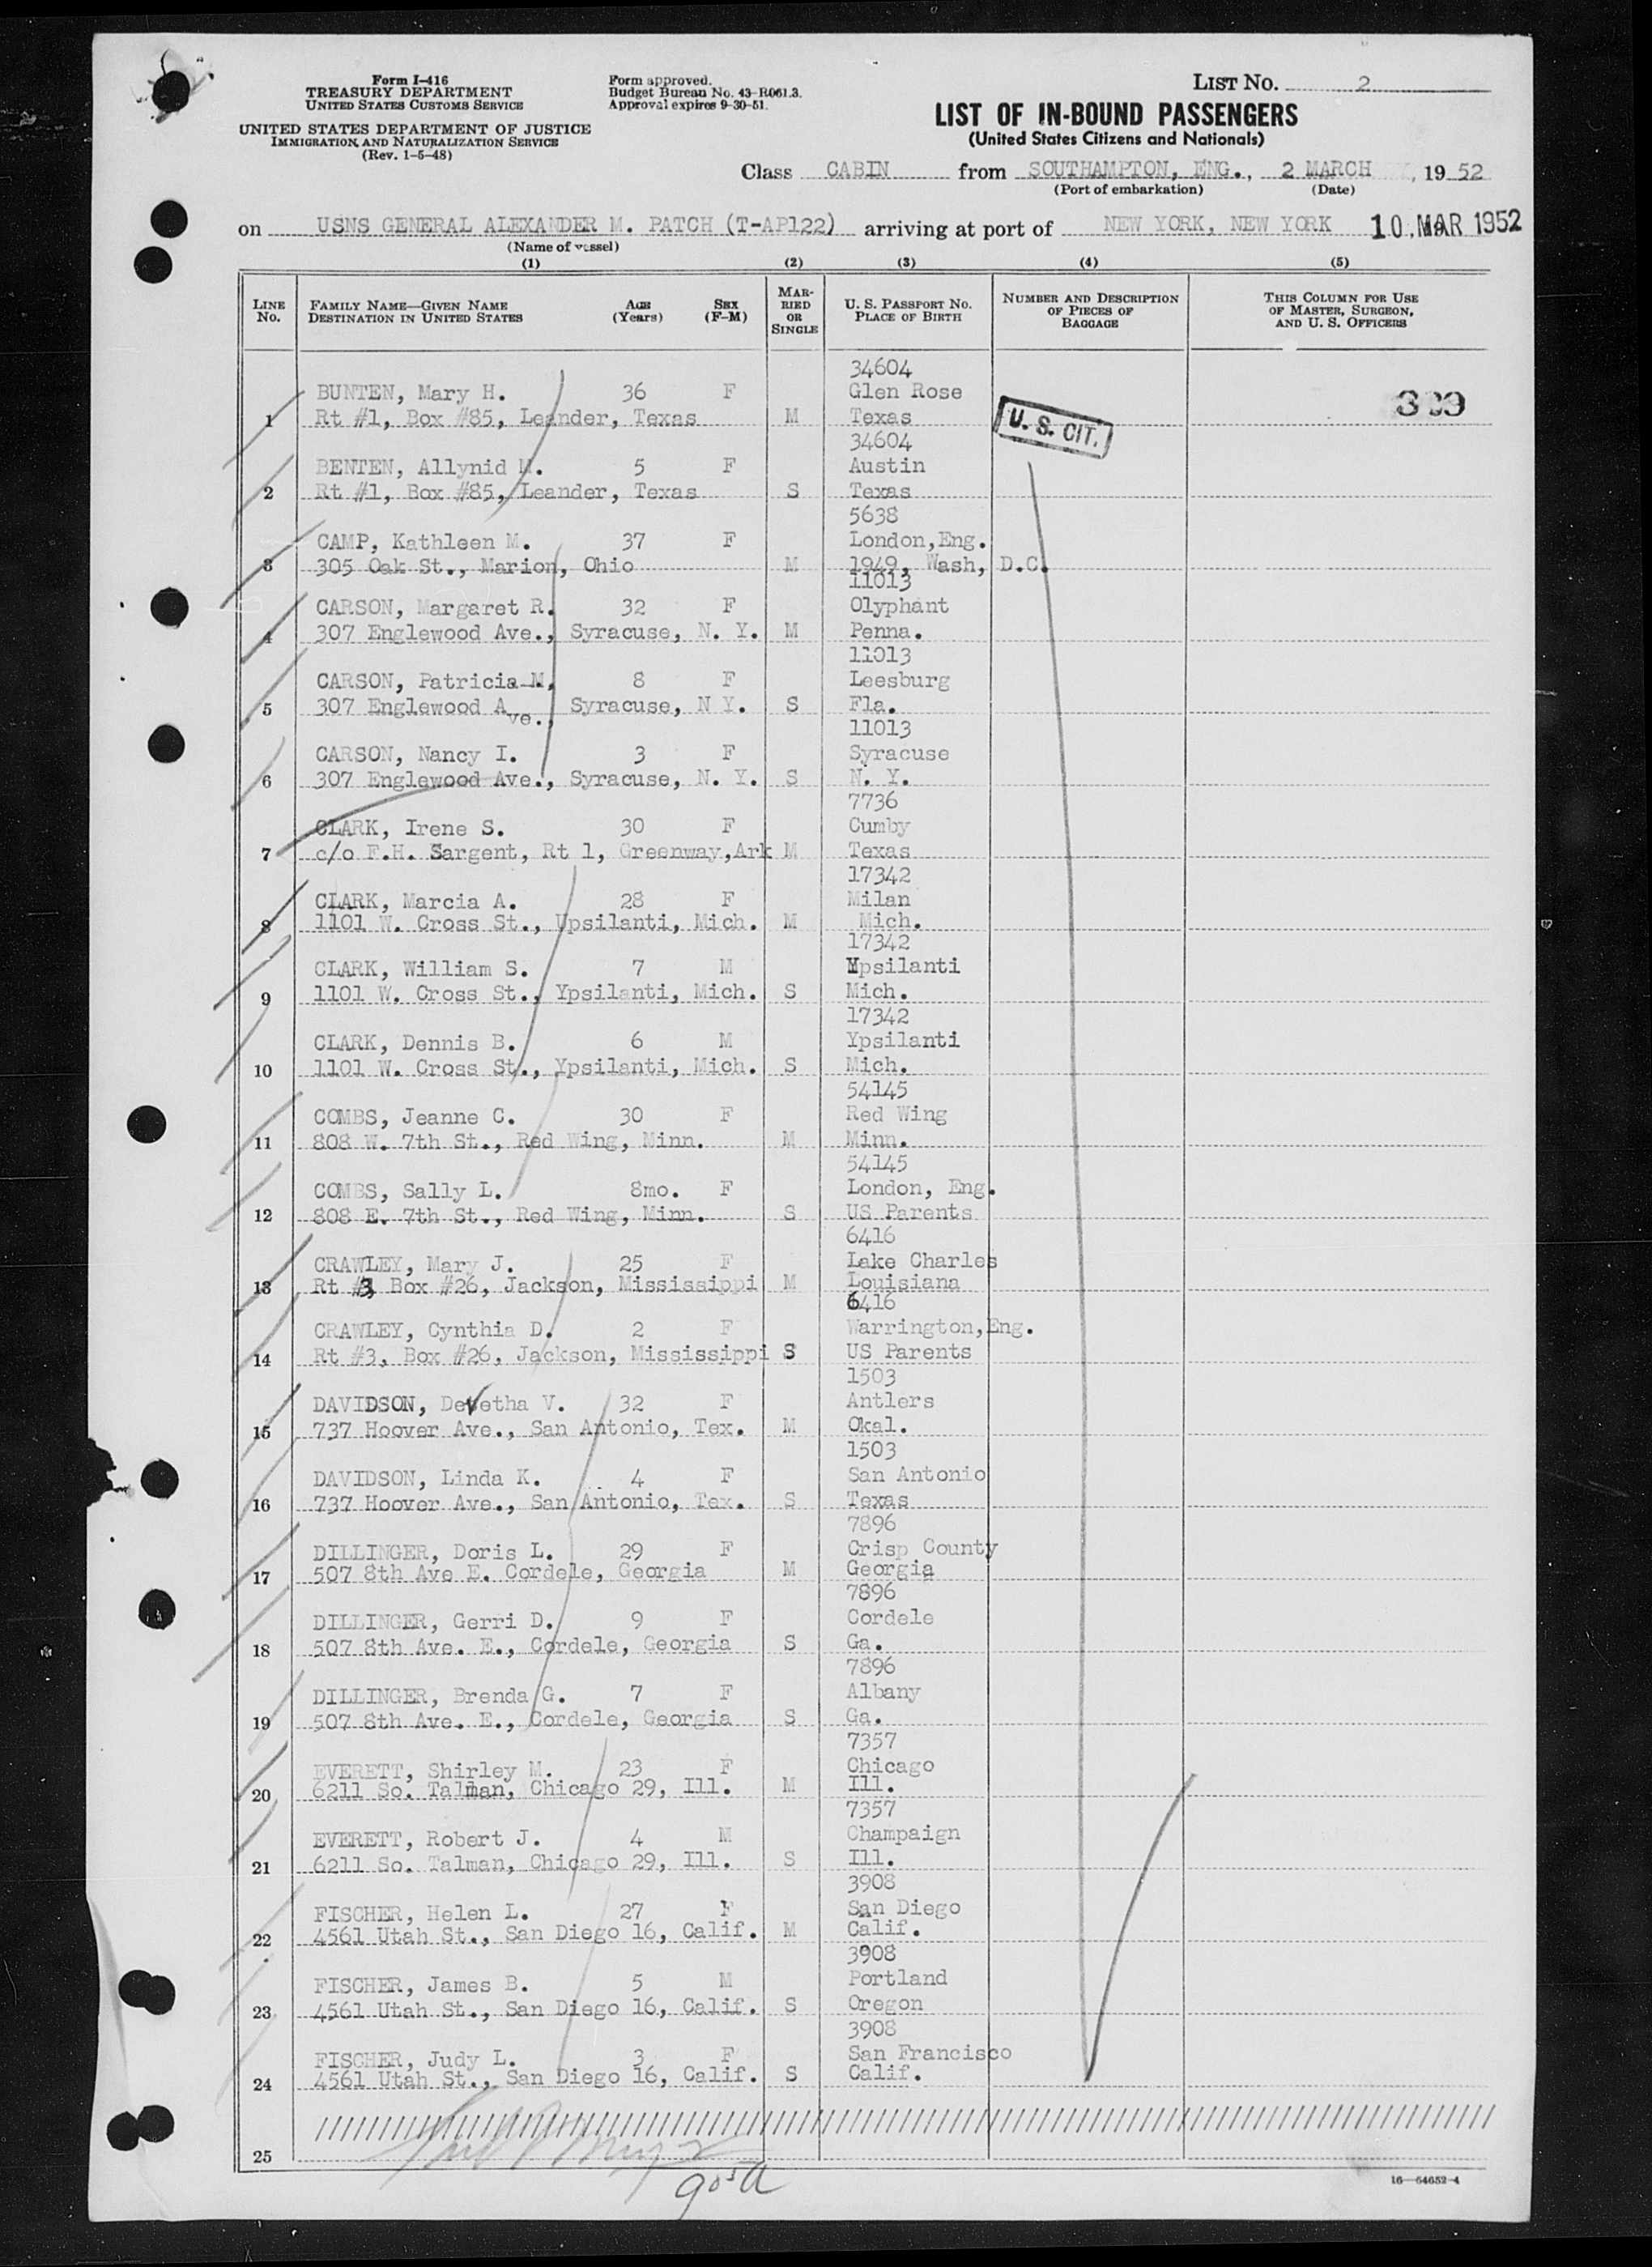 Form I-416
TREASURY DEPARTMENT
UNITED STATES CUSTOMS SERVICE
UNITED STATES DEPARTMENT OF JUSTICE
IMMIGRATION AND NATURALIZATION SERVICE
(Rev. 1-5-48)
Form approved.
Budget Bureau No. 43-R061.3.
Approval expires 9-30-51.
LIST NO. 2
LIST OF IN-BOUND PASSENGERS
(United States Citizens and Nationals)
Class CABIN from SOUTHAMPTON, ENG., 2 MARCH, 1952
(Port of embarkation) (Date)
on USNS GENERAL ALEXANDER M. PATCH (T-AP122) arriving at port of NEW YORK, NEW YORK 10 MAR 1952
(Name of vessel)
(1) (2) (3) (4) (5)
LINE NO.
FAMILY NAME—GIVEN NAME
DESTINATION IN UNITED STATES
AGE (Years)
SEX (F-M)
MARRIED OR SINGLE
U. S. PASSPORT NO.
PLACE OF BIRTH
NUMBER AND DESCRIPTION OF PIECES OF BAGGAGE
THIS COLUMN FOR USE OF MASTER, SURGEON, AND U. S. OFFICERS
34604
BUNTEN, Mary H. 36 F Glen Rose
1 Rt #1, Box #85, Leander, Texas M Texas
U. S. CIT.
34604
BENTEN, Allynid M. 5 F Austin
2 Rt #1, Box #85, Leander, Texas S Texas
5638
CAMP, Kathleen M. 37 F London,Eng.
3 305 Oak St., Marion, Ohio M 1949, Wash, D.C.
11013
CARSON, Margaret R. 32 F Olyphant
4 307 Englewood Ave., Syracuse, N. Y. M Penna.
11013
CARSON, Patricia M. 8 F Leesburg
5 307 Englewood Ave., Syracuse, N Y. S Fla.
11013
CARSON, Nancy I. 3 F Syracuse
6 307 Englewood Ave., Syracuse, N. Y. S N. Y.
7736
CLARK, Irene S. 30 F Cumby
7 c/o F.H. Sargent, Rt 1, Greenway,Ark M Texas
17342
CLARK, Marcia A. 28 F Milan
8 1101 W. Cross St., Upsilanti, Mich. M Mich.
17342
CLARK, William S. 7 M Ypsilanti
9 1101 W. Cross St., Ypsilanti, Mich. S Mich.
17342
CLARK, Dennis B. 6 M Ypsilanti
10 1101 W. Cross St., Ypsilanti, Mich. S Mich.
54145
COMBS, Jeanne C. 30 F Red Wing
11 808 W. 7th St., Red Wing, Minn. M Minn.
54145
COMBS, Sally L. 8mo. F London, Eng.
12 808 E. 7th St., Red Wing, Minn. S US Parents
6416
CRAWLEY, Mary J. 25 F Lake Charles
13 Rt #3, Box #26, Jackson, Mississippi M Louisiana
6416
CRAWLEY, Cynthia D. 2 F Warrington,Eng.
14 Rt #3, Box #26, Jackson, Mississippi S US Parents
1503
DAVIDSON, DeVetha V. 32 F Antlers
15 737 Hoover Ave., San Antonio, Tex. M Okal.
1503
DAVIDSON, Linda K. 4 F San Antonio
16 737 Hoover Ave., San Antonio, Tex. S Texas
7896
DILLINGER, Doris L. 29 F Crisp County
17 507 8th Ave E. Cordele, Georgia M Georgia
7896
DILLINGER, Gerri D. 9 F Cordele
18 507 8th Ave. E., Cordele, Georgia S Ga.
7896
DILLINGER, Brenda G. 7 F Albany
19 507 8th Ave. E., Cordele, Georgia S Ga.
7357
EVERETT, Shirley M. 23 F Chicago
20 6211 So. Talman, Chicago 29, Ill. M Ill.
7357
EVERETT, Robert J. 4 M Champaign
21 6211 So. Talman, Chicago 29, Ill. S Ill.
3908
FISCHER, Helen L. 27 F San Diego
22 4561 Utah St., San Diego 16, Calif. M Calif.
3908
FISCHER, James B. 5 M Portland
23 4561 Utah St., San Diego 16, Calif. S Oregon
3908
FISCHER, Judy L. 3 F San Francisco
24 4561 Utah St., San Diego 16, Calif. S Calif.
25
16—64652-4